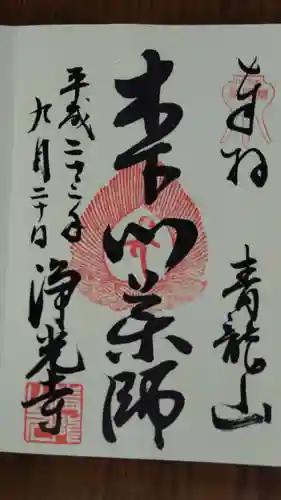 奉拝 青龍山
木下川薬師
平成二十三年
九月二十日 浄光寺